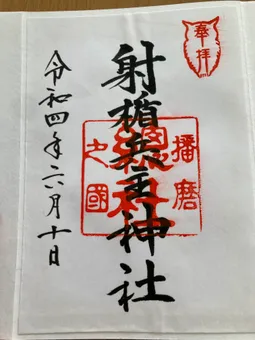 奉拝
射楯兵主神社
播磨
總社
之國
令和四年六月十日